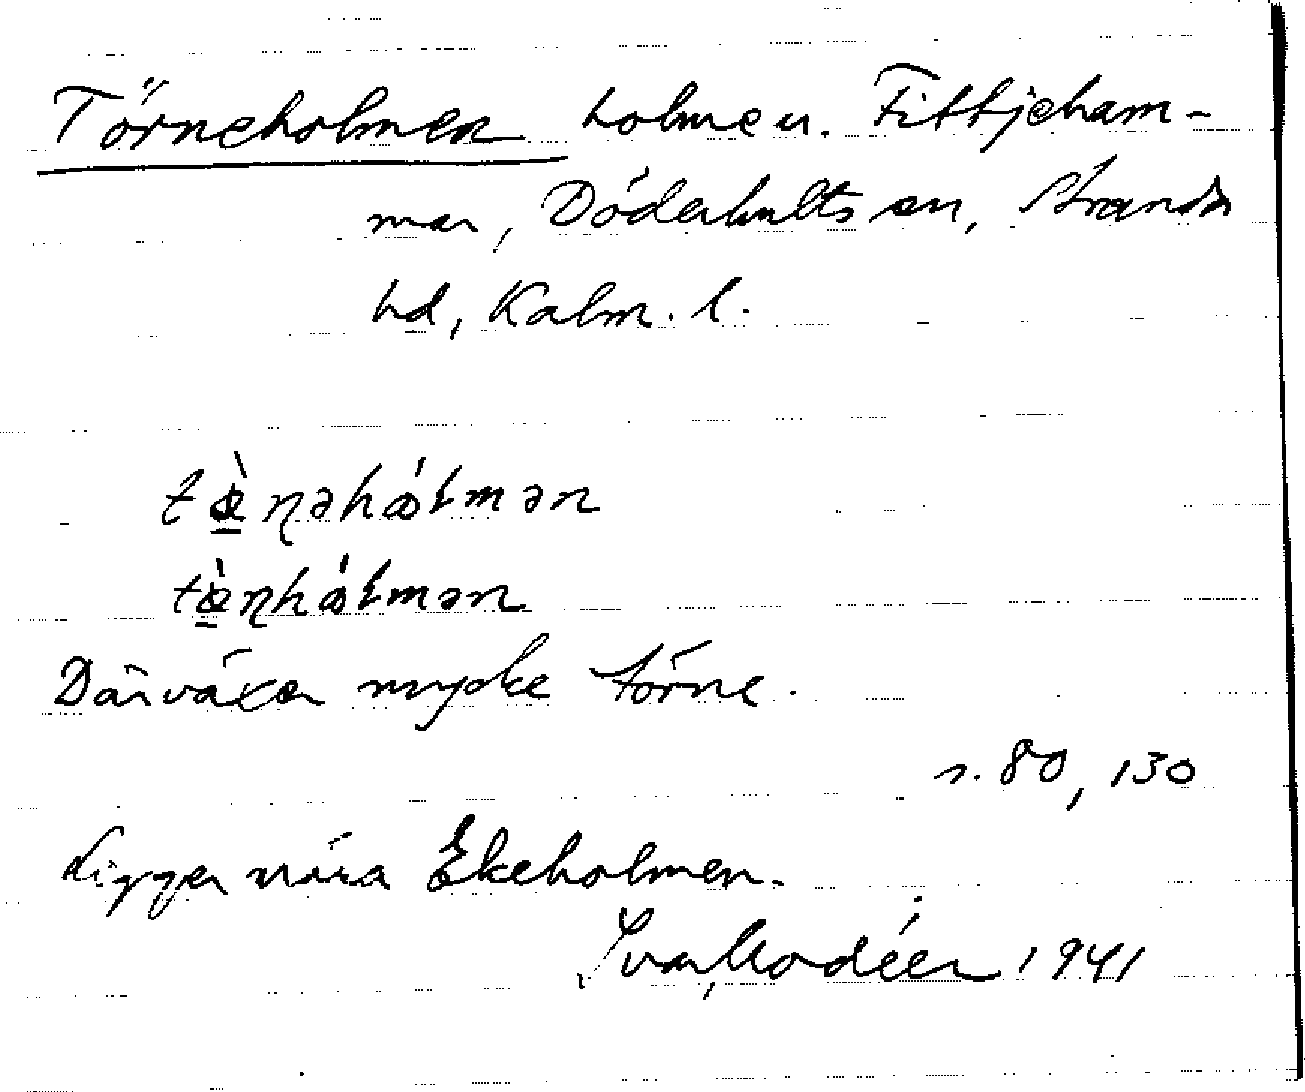 Törneholmen holme u. Fittjeham-
mar, Döderhults sn, Stranda
hd, Kalm. l.
tœ̀ɳəhɷ́ƚmən
tœ̀ɳhɷ́ƚmən
Där växer mycke törne.
s. 80, 130
Ligger nära Ekeholmen.
Ivar Modéer 1941